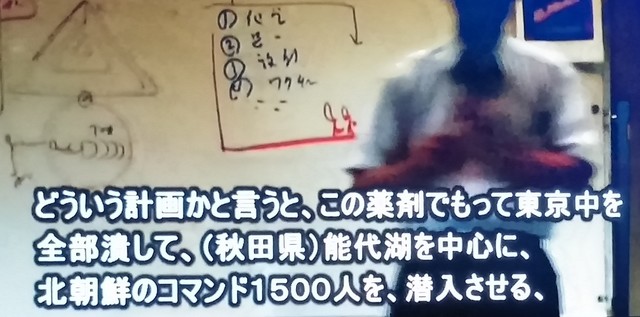 ①
②
どういう計画かと言うと、この薬剤でもって東京中を
全部潰して、(秋田県)能代湖を中心に、
北朝鮮のコマンド1500人を、潜入させる、